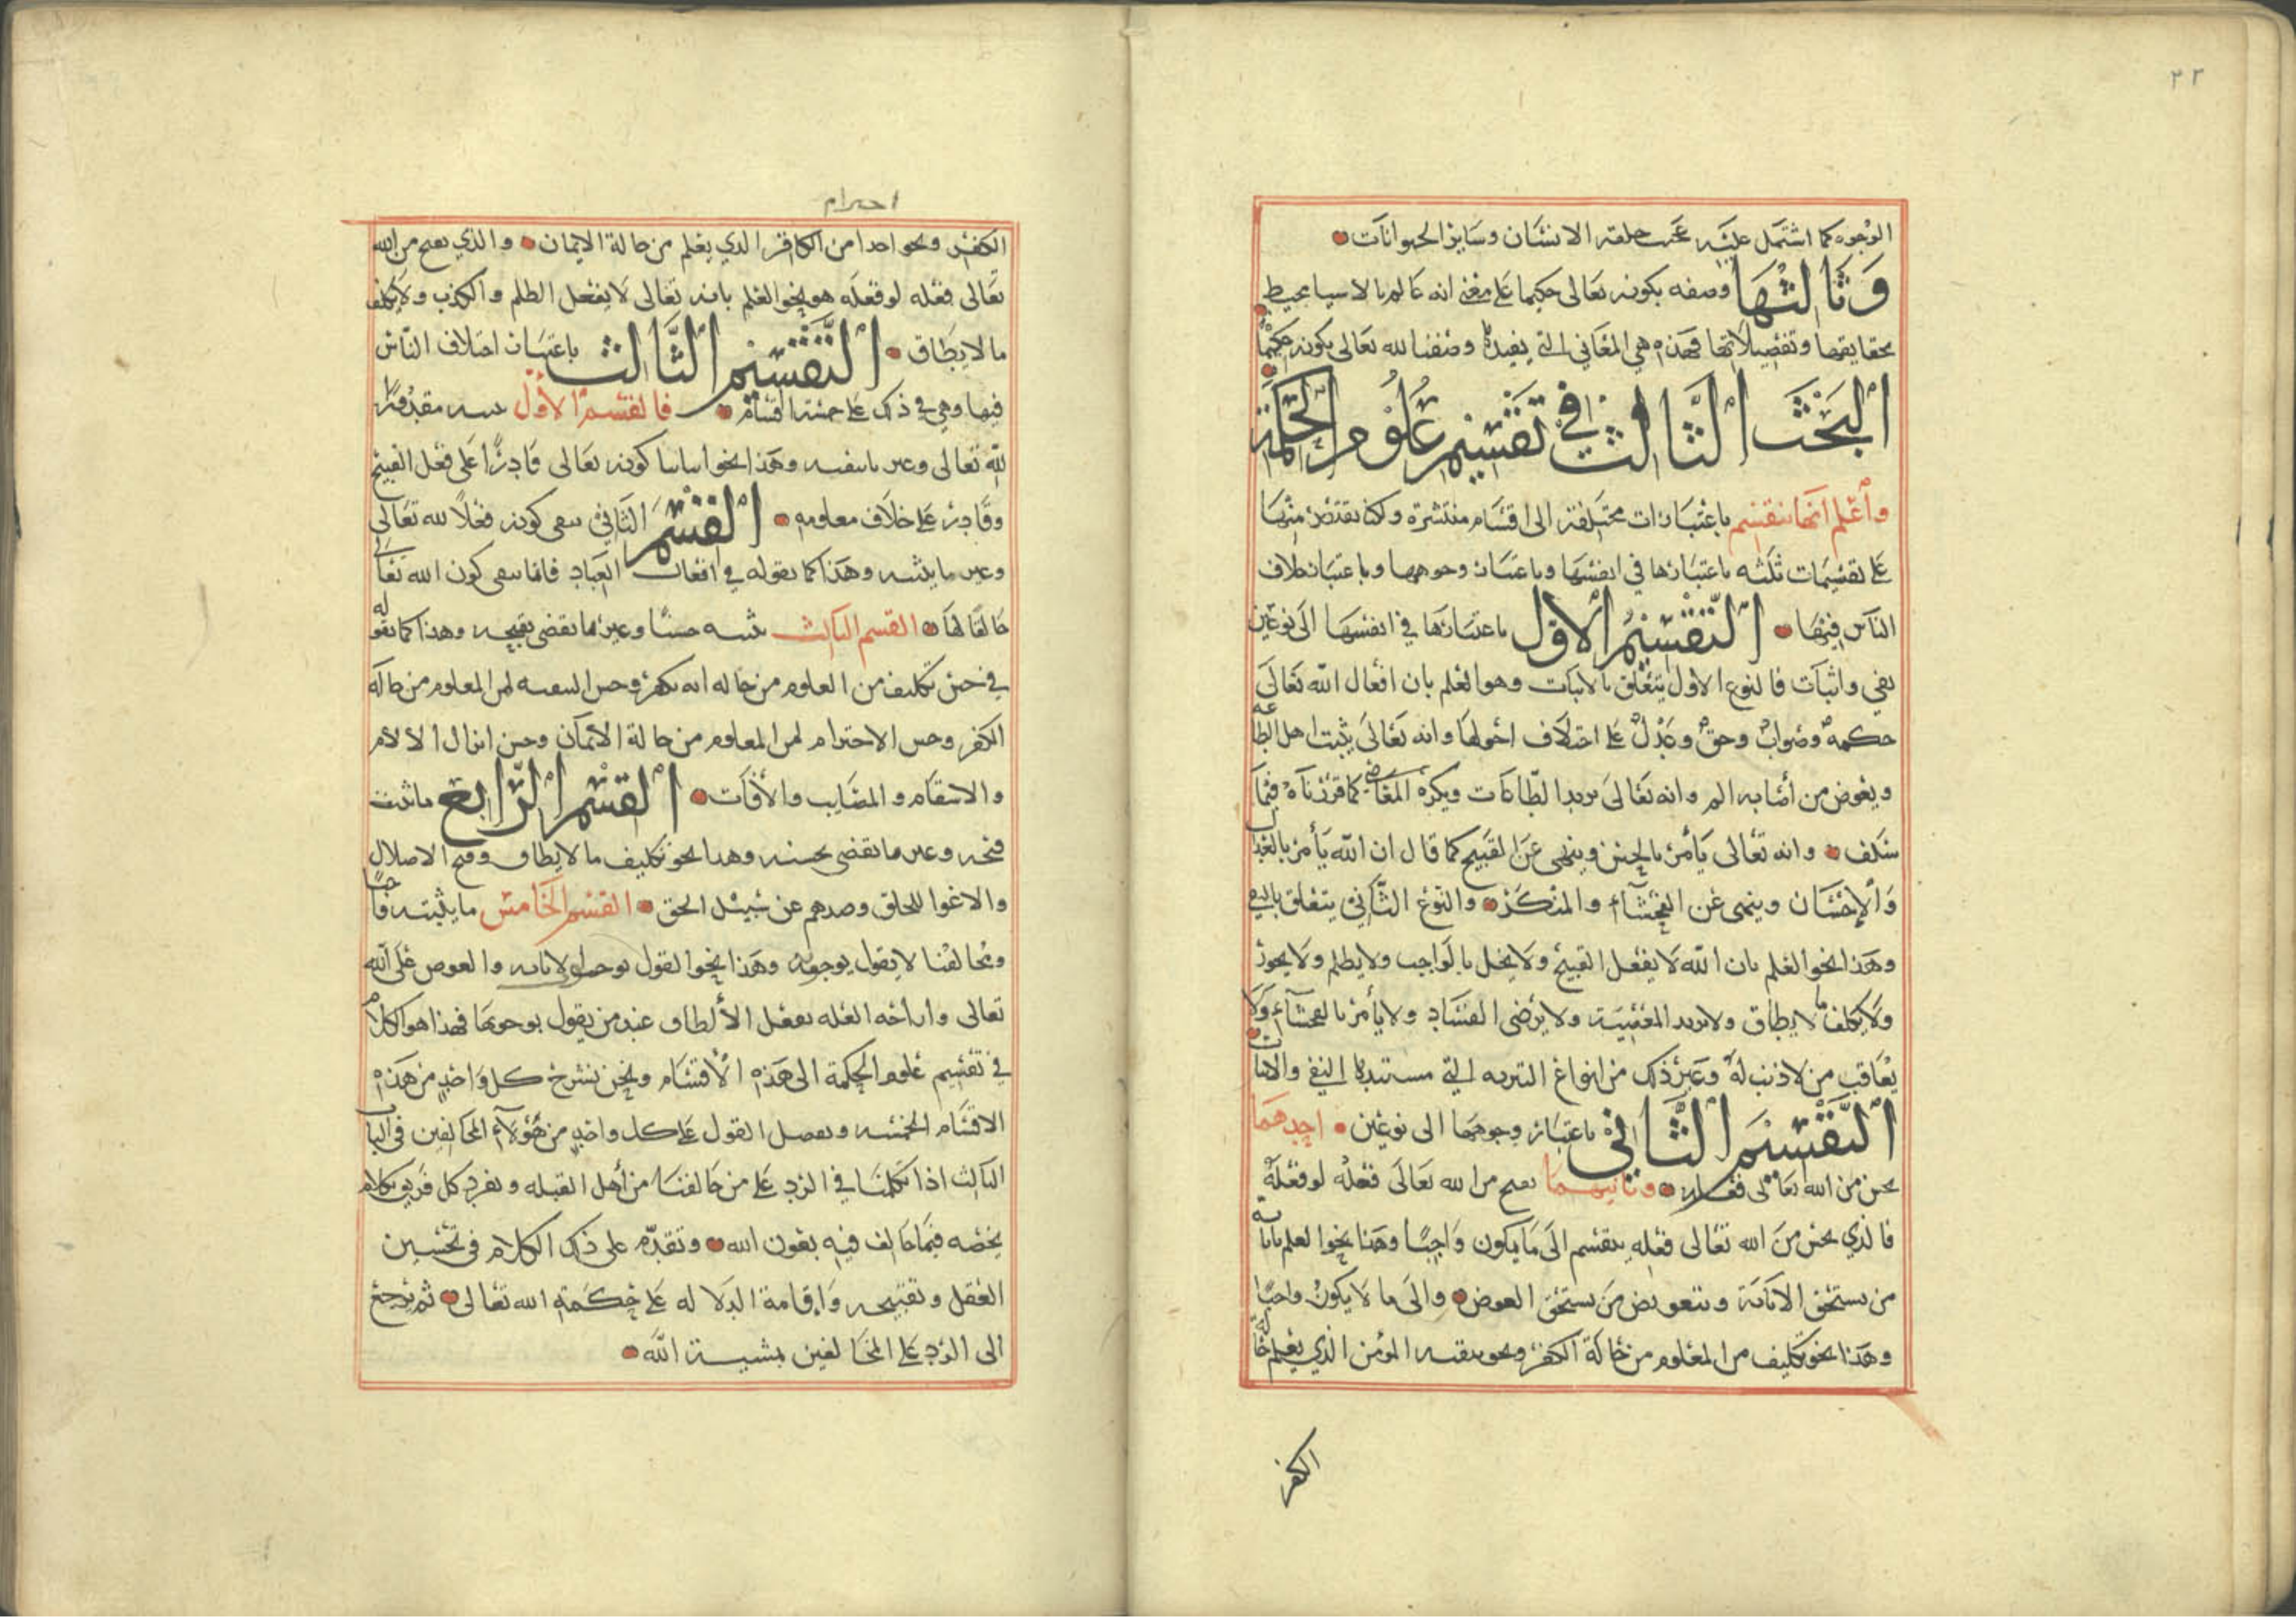 ٢٢
الوجوه كما اشتمل عليه عجيب خلقة الانسان وساير الحيوانات
وثالثها وصفه بكونه تعالى حكيما على معنى انه عالم بالاشيا محيط
بحقايقها وتفصيلاتها فهذه هي المعاني التي يفيدها وصفنا لله تعالى بكونه حكيما
البحث الثالث في تقسيم علوم الحكمة
واعلم انها تنقسم باعتبارات مختلفة الى اقسام منتشرة ولكنا نقتصر منها
على تقسيمات ثلثه باعتبارها في انفسها وباعتبار وجوهها وباعتبار خلاف
الناس فيها التقسيم الاول باعتبارها في انفسها الى نوعين
نفي واثبات فالنوع الاول يتعلق بالاثبات وهو العلم بان افعال الله تعالى
حكمة وصواب وحق وعدل على اختلاف احوالها وانه تعالى يثيب اهل الطاعه
ويعوض من أصابه الم وانه تعالى يريد الطاعات ويكره المعاصي كما قررناه فيما
سلف وانه تعالى يأمر بالحسن وينهى عن القبيح كما قال ان الله يأمر بالعدل
والإحسان وينهى عن الفحشآء والمنكر والنوع الثاني يتعلق بالنفي
وهذا نحو العلم بان الله لا يفعل القبيح ولا يخل بالواجب ولا يظلم ولا يجور
ولا يكلف ما لا يطاق ولا يريد المعصية ولا يرضى الفساد ولا يأمر بالفحشآء ولا
يعاقب من لا ذنب له وغير ذلك من انواع التنزيه التي مستندها النفي والاثبات
التقسيم الثاني باعتبار وجوهها الى نوعين احدهما
يحسن من الله تعالى فعله وثانيهما يقبح من الله تعالى فعله لو فعله
فالذي يحسن من الله تعالى فعله ينقسم الى ما يكون واجبا وهذا نحو العلم باثابة
من يستحق الاثابة وبتعويض من يستحق العوض والى ما لا يكون واجبا
وهذا نحو تكليف من المعلوم من حالة الكفر ونحو تبقيه المؤمن الذي يعلم من حاله
الكفر
احترام
الكفر ونحو احترام من الكافر الذي يعلم من حالة الايمان والذي يقبح من الله
تعالى فعله لو فعله هو نحو العلم بانه تعالى لا يفعل الظلم والكذب ولا يكلف
ما لا يطاق التقسيم الثالث باعتبار اختلاف الناس
فيها وهي في ذلك على خمسة اقسام فالقسم الاول نثبته مقدورا
لله تعالى وغيرنا ينفيه وهذا نحو اثباتنا كونه تعالى قادرا على فعل القبيح
وقادر على خلاف معلومه القسم الثاني ننفي كونه فعلا لله تعالى
وغيرنا يثبته وهذا كما نقوله في افعال العباد فانا ننفي كون الله تعالى
خالقا لها القسم الثالث نثبته حسنا وغيرنا يقضي بقبحه وهذا كما نقوله
في حسن تكليف من المعلوم من حاله انه يكفر وحسن التبقيه لمن المعلوم من حاله
الكفر وحسن الاخترام لمن المعلوم من حالة الايمان وحسن انزال الالام
والاسقام والمصايب والأفات القسم الرابع ما نثبت
قبحه وغيرنا يقضي بحسنه وهذا نحو تكليف ما لا يطاق وقبح الاضلال
والاغوا للخلق وصدهم عن سبيل الحق القسم الخامس ما يثبته واجبا
ومخالفنا لا يقول بوجوبه وهذا نحو القول بوجوب الاثابه والعوض على الله
تعالى وازاحه العله بفعل الألطاف عند من يقول بوجوبها فهذا هو الكلام
في تقسيم علوم الحكمة الى هذه الأقسام ونحن نشرح كل واحد من هذه
الاقسام الخمسه ونفصل القول على كل واحد من هؤلآء المخالفين في الباب
الثالث اذا تكلمنا في الرد على من خالفنا من أهل القبله ونفرد كل فريق بكلام
يخصه فيما خالف فيه بعون الله وتقدم على ذلك الكلام في تحسين
العقل وتقبيحه واقامة الدلالة على حكمة الله تعالى ثم نرجع
الى الرد على المخالفين بمشيئة الله